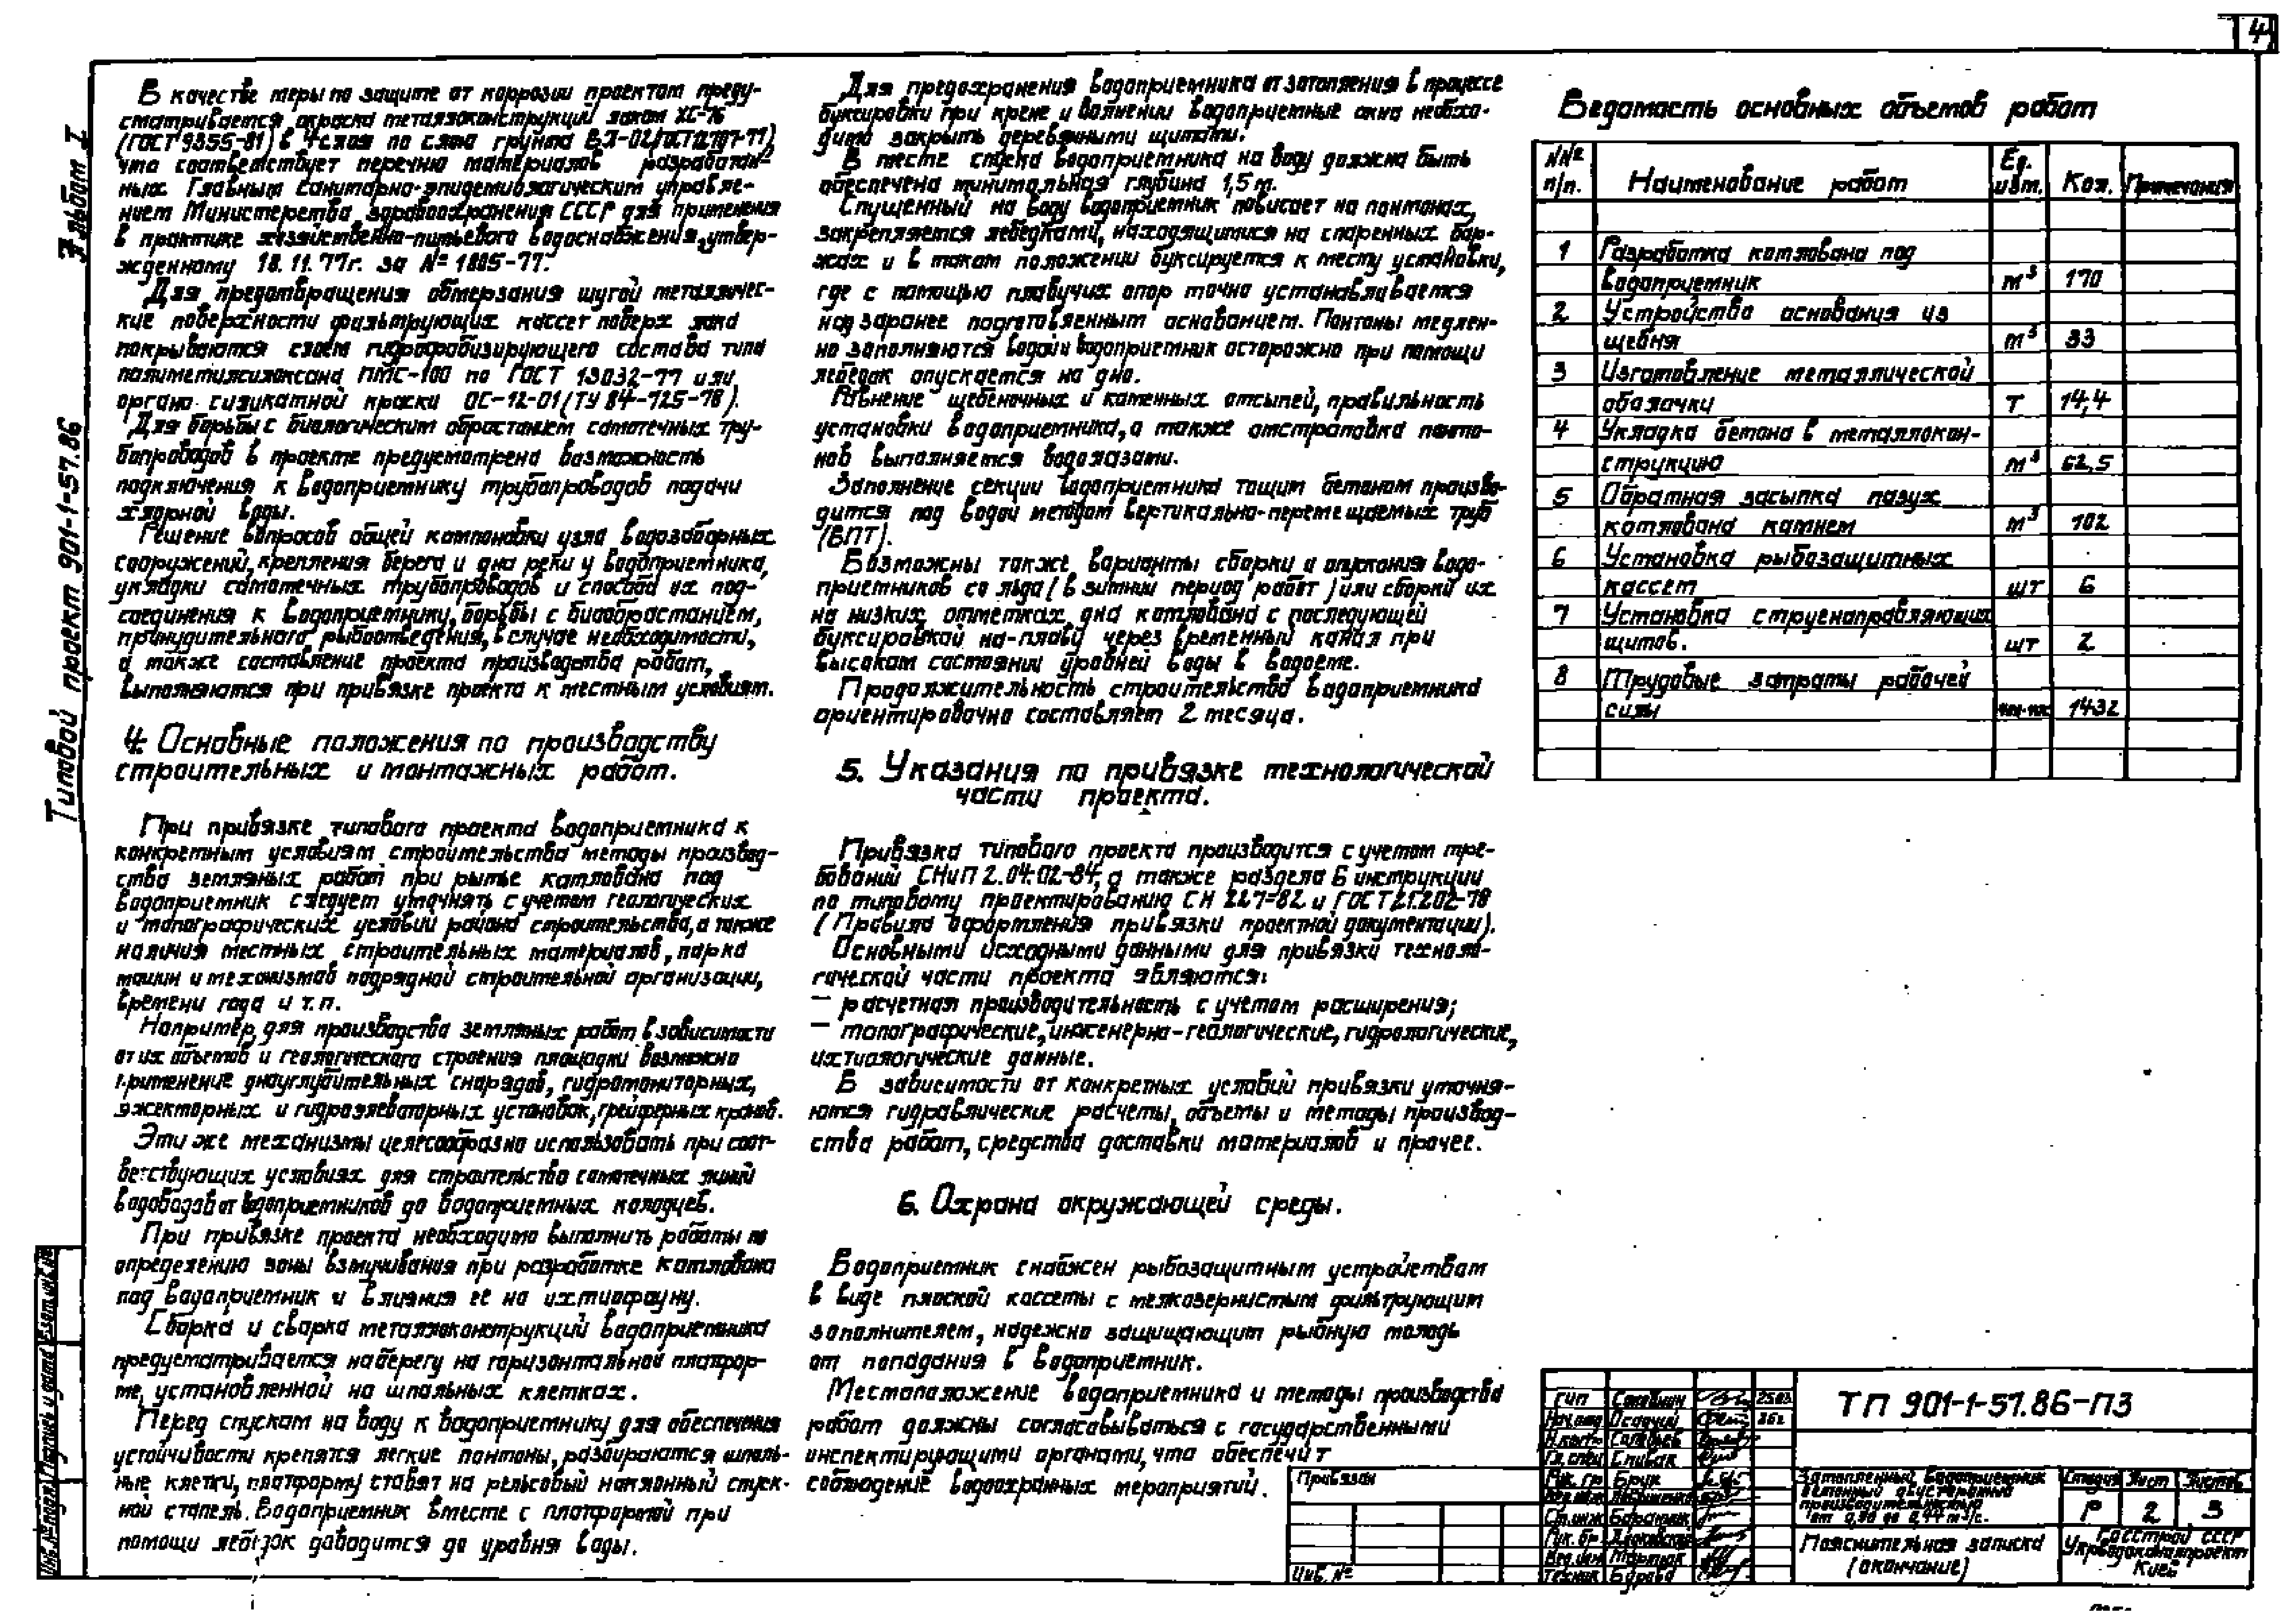 4
Альбом I
Типовой проект 901-1-57.86
В качестве меры по защите от коррозии проектом преду-
сматривается окраска металлоконструкций лаком ХС-76
(ГОСТ 9355-81) в 4 слоя по слою грунта ВЛ-02 (ГОСТ 12707-77),
что соответствует перечню материалов, разработан-
ных Главным Санитарно-эпидемиологическим управле-
нием Министерства здравоохранения СССР для применения
в практике хозяйственно-питьевого водоснабжения, утвер-
жденному 18.11.77г. за № 1805-77.
Для предотвращения обмерзания шугой металличес-
кие поверхности фильтрующих кассет поверх лака
покрываются слоем гидрофобизирующего состава типа
полиметилсилоксана ПМС-100 по ГОСТ 13032-77 или
органо-силикатной краски ОС-12-01 (ТУ 84-725-78).
Для борьбы с биологическим обрастанием самотечных тру-
бопроводов в проекте предусмотрена возможность
подключения к водоприемнику трубопроводов подачи
хлорной воды.
Решение вопросов общей компоновки узла водозаборных
сооружений, крепления берега и дна реки у водоприемника,
укладки самотечных трубопроводов и способа их под-
соединения к водоприемнику, борьбы с биообрастанием,
принудительного рыбоотведения, в случае необходимости,
а также составление проекта производства работ,
выполняются при привязке проекта к местным условиям.
4. Основные положения по производству
строительных и монтажных работ.
При привязке типового проекта водоприемника к
конкретным условиям строительства методы производ-
ства земляных работ при рытье котлована под
водоприемник следует уточнять с учетом геологических
и топографических условий района строительства, а также
наличия местных строительных материалов, парка
машин и механизмов подрядной строительной организации,
времени года и т.п.
Например, для производства земляных работ в зависимости
от их объемов и геологического строения площадки возможно
применение дноуглубительных снарядов, гидромониторных,
эжекторных и гидроэлеваторных установок, грейферных кранов.
Эти же механизмы целесообразно использовать при соот-
ветствующих условиях для строительства самотечных линий
водоводов от водоприемников до водоприемных колодцев.
При привязке проекта необходимо выполнить работы по
определению зоны взмучивания при разработке котлована
под водоприемник и влияния ее на ихтиофауну.
Сборка и сварка металлоконструкций водоприемника
предусматривается на берегу на горизонтальной платфор-
ме, установленной на шпальных клетках.
Перед спуском на воду к водоприемнику для обеспечения
устойчивости крепятся легкие понтоны, разбираются шпаль-
ные клетки, платформу ставят на рельсовый наклонный спуск-
ной стапель. Водоприемник вместе с платформой при
помощи лебедок доводится до уровня воды.
Для предохранения водоприемника от затопления в процессе
буксировки при крене и волнении водоприемные окна необхо-
димо закрыть деревянными щитами.
В месте спуска водоприемника на воду должна быть
обеспечена минимальная глубина 1,5 м.
Спущенный на воду водоприемник повисает на понтонах,
закрепляется лебедками, находящимися на спаренных бар-
жах и в таком положении буксируется к месту установки,
где с помощью плавучих опор точно устанавливается
над заранее подготовленным основанием. Понтоны медлен-
но заполняются водой и водоприемник осторожно при помощи
лебедок опускается на дно.
Ровнение щебеночных и каменных отсыпей, правильность
установки водоприемника, а также отстроповка понто-
нов выполняется водолазами.
Заполнение секции водоприемника тощим бетоном произво-
дится под водой методом вертикально-перемещаемых труб
(ВПТ).
Возможны также варианты сборки и опускания водо-
приемников со льда (в зимний период работ) или сборки их
на низких отметках дна котлована с последующей
буксировкой на-плаву через временный канал при
высоком состоянии уровней воды в водоеме.
Продолжительность строительства водоприемника
ориентировочно составляет 2 месяца.
5. Указания по привязке технологической
части проекта.
Привязка типового проекта производится с учетом тре-
бований СНиП 2.04.02-84, а также раздела 6 инструкции
по типовому проектированию СН 227-82 и ГОСТ 21.202-78
(Правила оформления привязки проектной документации).
Основными исходными данными для привязки техноло-
гической части проекта являются:
– расчетная производительность с учетом расширения;
– топографические, инженерно-геологические, гидрологические,
ихтиологические данные.
В зависимости от конкретных условий привязки уточня-
ются гидравлические расчеты, объемы и методы производ-
ства работ, средства доставки материалов и прочее.
6. Охрана окружающей среды.
Водоприемник снабжен рыбозащитным устройством
в виде плоской кассеты с мелкозернистым фильтрующим
заполнителем, надежно защищающим рыбную молодь
от попадания в водоприемник.
Местоположение водоприемника и методы производства
работ должны согласовываться с государственными
инспектирующими органами, что обеспечит
соблюдение водоохранных мероприятий.
Ведомость основных объемов работ
№№ п/п. Наименование работ Ед. изм. Кол. Примечания
1 Разработка котлована под
водоприемник м³ 170
2 Устройство основания из
щебня м³ 33
3 Изготовление металлической
оболочки т 14,4
4 Укладка бетона в металлокон-
струкцию м³ 62,5
5 Обратная засыпка пазух
котлована камнем м³ 102
6 Установка рыбозащитных
кассет шт 6
7 Установка струенаправляющих
щитов. шт 2
8 Трудовые затраты рабочей
силы 1432
Привязан
Инв. №
ГИП
Нач.отд Осадчий
Н.контр Соловьев
Гл.спец Спивак
Рук. гр Брук
Ст.инж
Рук. бр
Вед.инж
Техник
ТП 901-1-57.86-ПЗ
Затопленный водоприемник
бетонный двусторонний
производительностью
Стадия Лист Листов
Р 2 3
Пояснительная записка
(окончание)
Госстрой СССР
Укрводоканалпроект
Киев
Инв.№ подл. Подпись и дата Взам.инв.№